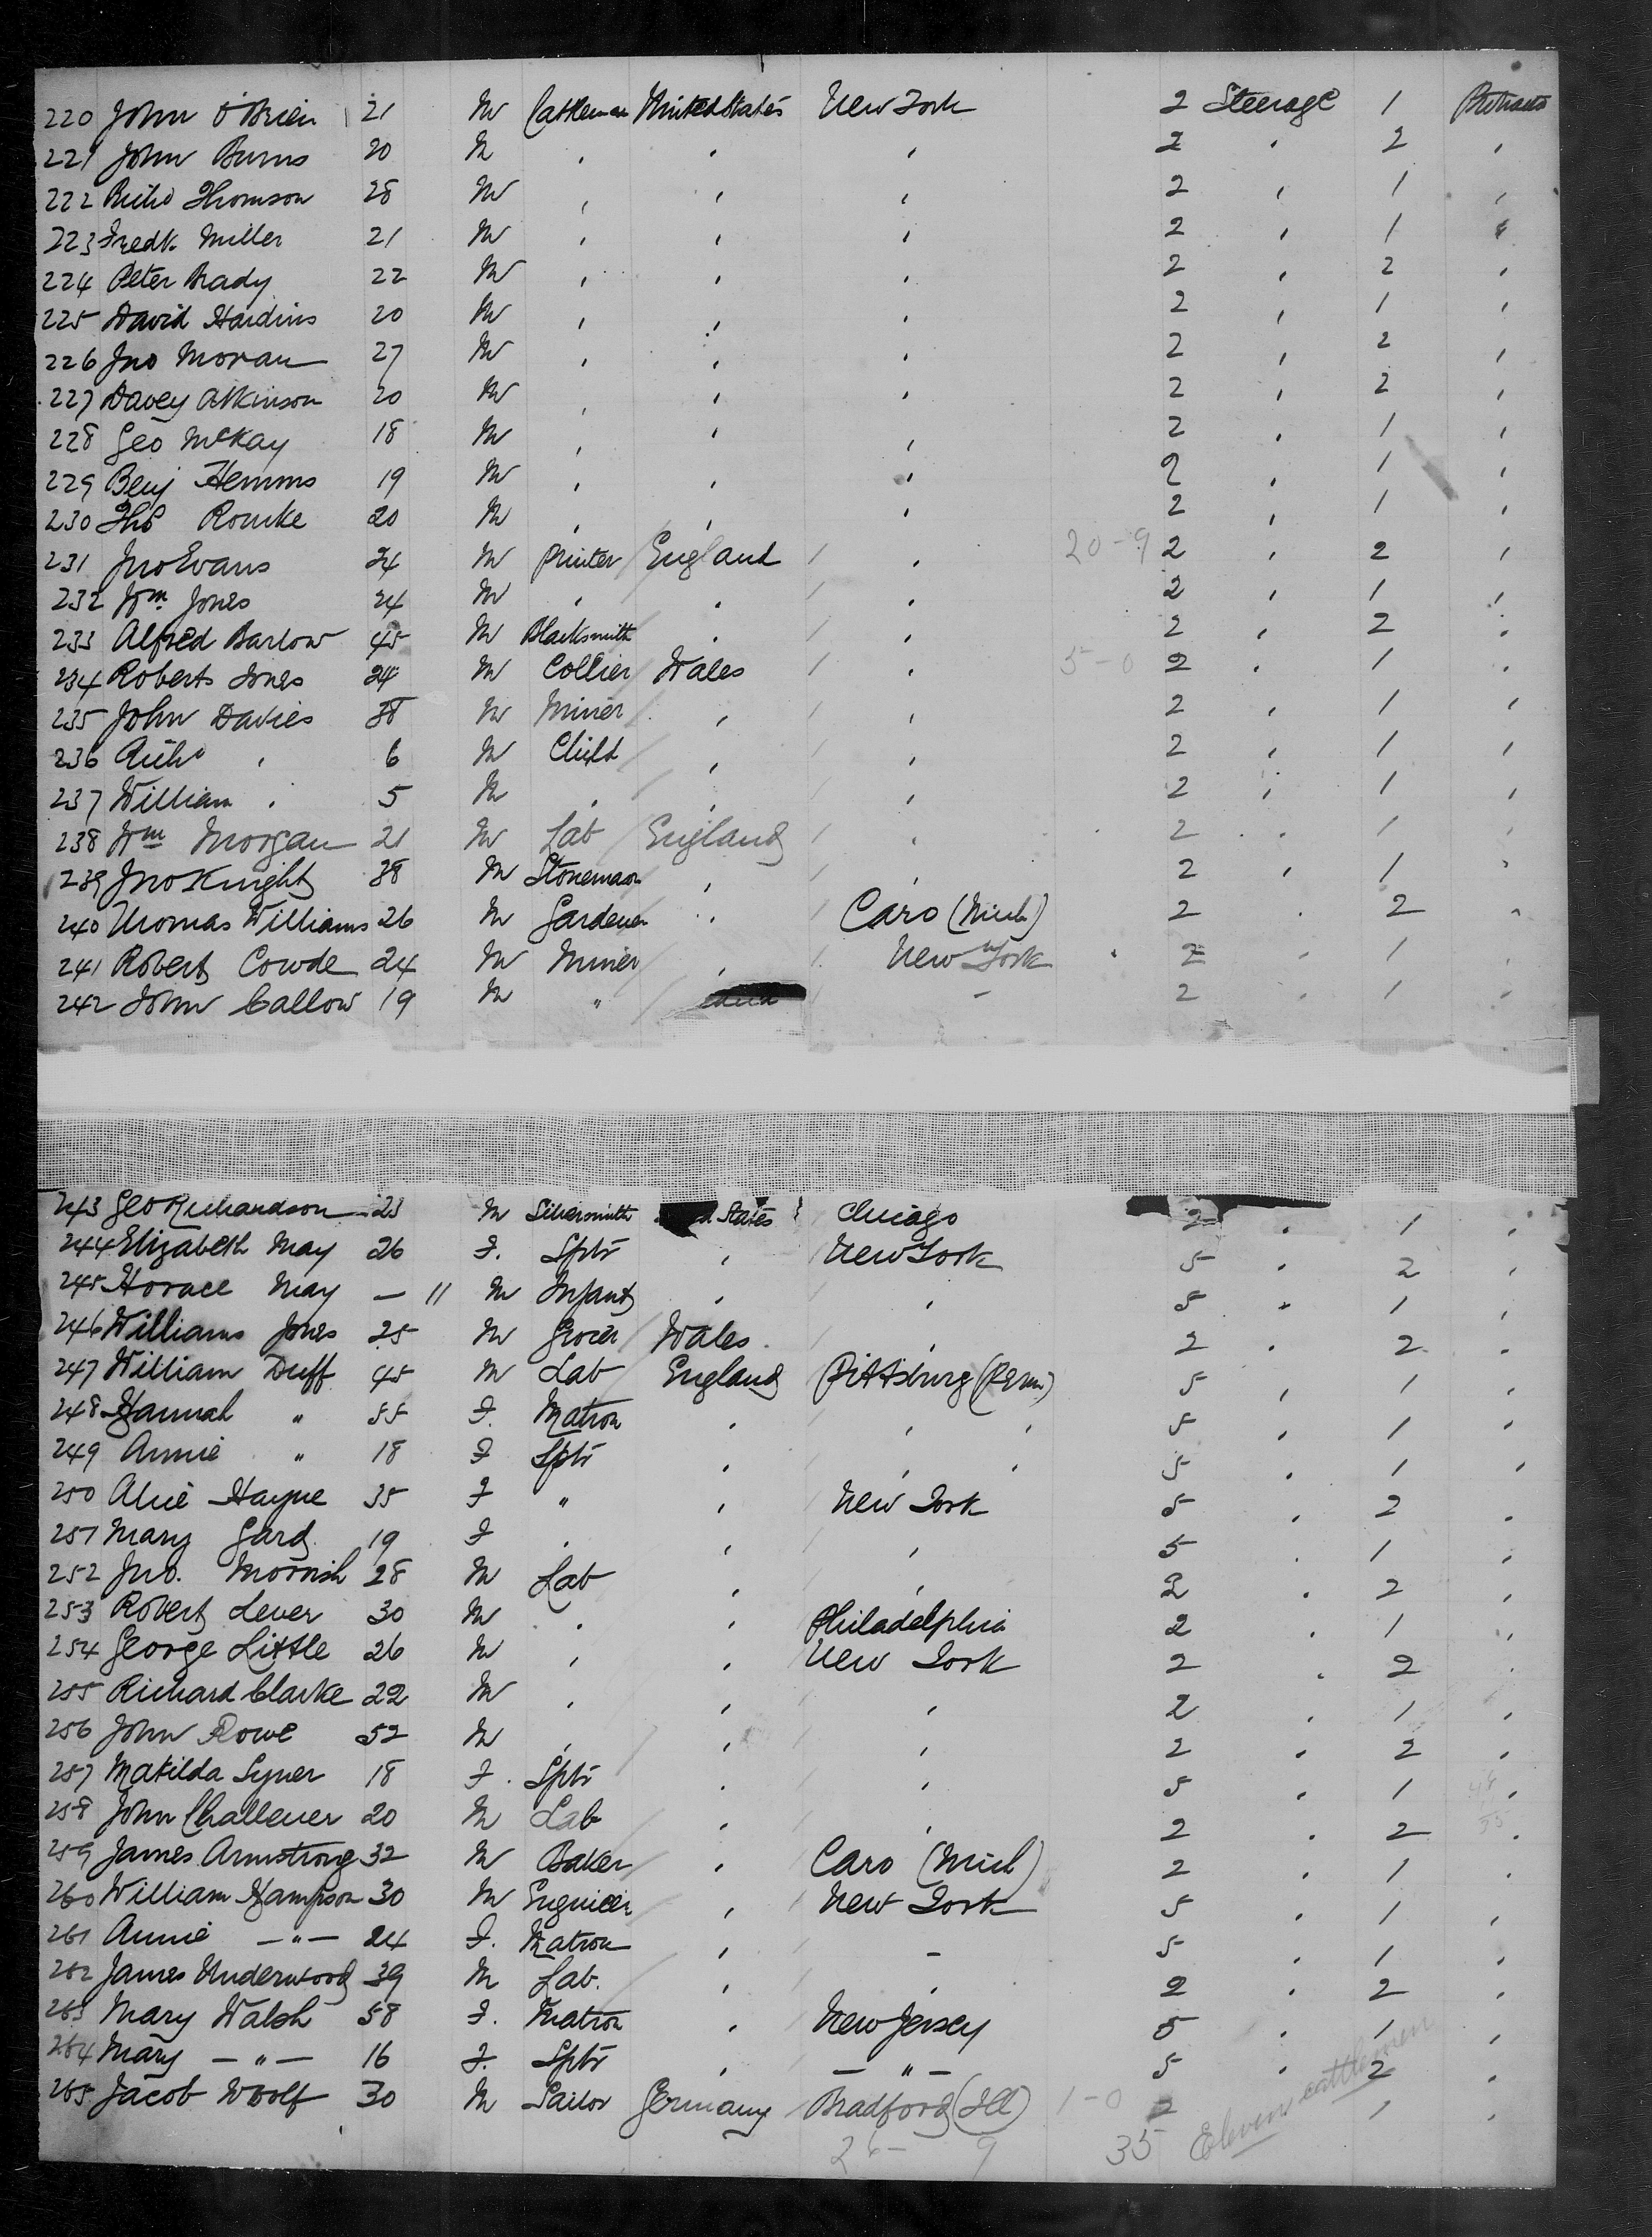 220 John O'Brien 21 M Cattleman United States New York 2 Steerage 1
221 John Burns 20 M " " " 2 " 2 "
222 Richd Thomson 28 M " " " 2 " 1 "
223 Fredk Miller 21 M " " " 2 " 1 "
224 Peter Brady 22 M " " " 2 " 2 "
225 David Hardins 20 M " " " 2 " 1 "
226 Jno Moran 27 M " " " 2 " 2 "
227 Davey Atkinson 20 M " " " 2 " 2 "
228 Geo McKay 18 M " " " 2 " 1 "
229 Benj Hemms 19 M " " " 2 " 1 "
230 Thos Rourke 20 M " " " 2 " 1 "
231 Jno Evans 24 M Printer England " 20-9 2 " 2 "
232 Wm Jones 24 M " " " 2 " 1 "
233 Alfred Barlow 45 M Blacksmith " " 2 " 2 "
234 Roberts Jones 24 M Collier Wales " 5-0 2 " 1 "
235 John Davies 38 M Miner " " 2 " 1 "
236 Richd " 6 M Child " " 2 " 1 "
237 William " 5 M " " " 2 " 1 "
238 Wm Morgan 21 M Lab England " 2 " 1 "
239 Jno Knight 38 M Stonemason " " 2 " 1 "
240 Thomas Williams 26 M Gardener " Caro (Mich) 2 " 2 "
241 Robert Cowde 24 M Miner " New York 2 " 1 "
242 John Callow 19 M " " 2 " 1 "
243 Geo Richardson 23 M Silversmith States Chicago 2 " 1 "
244 Elizabeth May 26 F. Sptr " New York 5 " 2 "
245 Horace May — 11 M Infant " " 5 " 1 "
246 Williams Jones 25 M Grocer Wales " 2 " 2 "
247 William Duff 45 M Lab England Pittsburg (Penn) 5 " 1 "
248 Hannah " 55 F. Matron " " " 5 " 1 "
249 Annie " 18 F Sptr " " " 5 " 1 "
250 Alice Hayne 35 F " " New York 5 " 2 "
251 Mary Gard 19 F " " " 5 " 1 "
252 Jno. Morrish 28 M Lab " " 2 " 2 "
253 Robert Lever 30 M " " Philadelphia 2 " 1 "
254 George Little 26 M " " New York 2 " 2 "
255 Richard Clarke 22 M " " " 2 " 1 "
256 John Rowe 52 M " " " 2 " 2 "
257 Matilda Syner 18 F. Sptr " " 5 " 1 "
258 John Challener 20 M Lab " " 2 " 2 "
259 James Armstrong 32 M Baker " Caro (Mich) 2 " 1 "
260 William Hampson 30 M Engineer " New York 5 " 1 "
261 Annie —"— 24 F. Matron " - 5 " 1 "
262 James Underwood 39 M Lab. " " 2 " 2 "
263 Mary Walsh 58 F. Matron " New Jersey 5 " 1 "
264 Mary —"— 16 F. Sptr " —"— 5 " 2 "
265 Jacob Woolf 30 M Sailor Germany Bradford (Ill) 1-0 2 1 "
26- 9 35 Eleven cattlemen